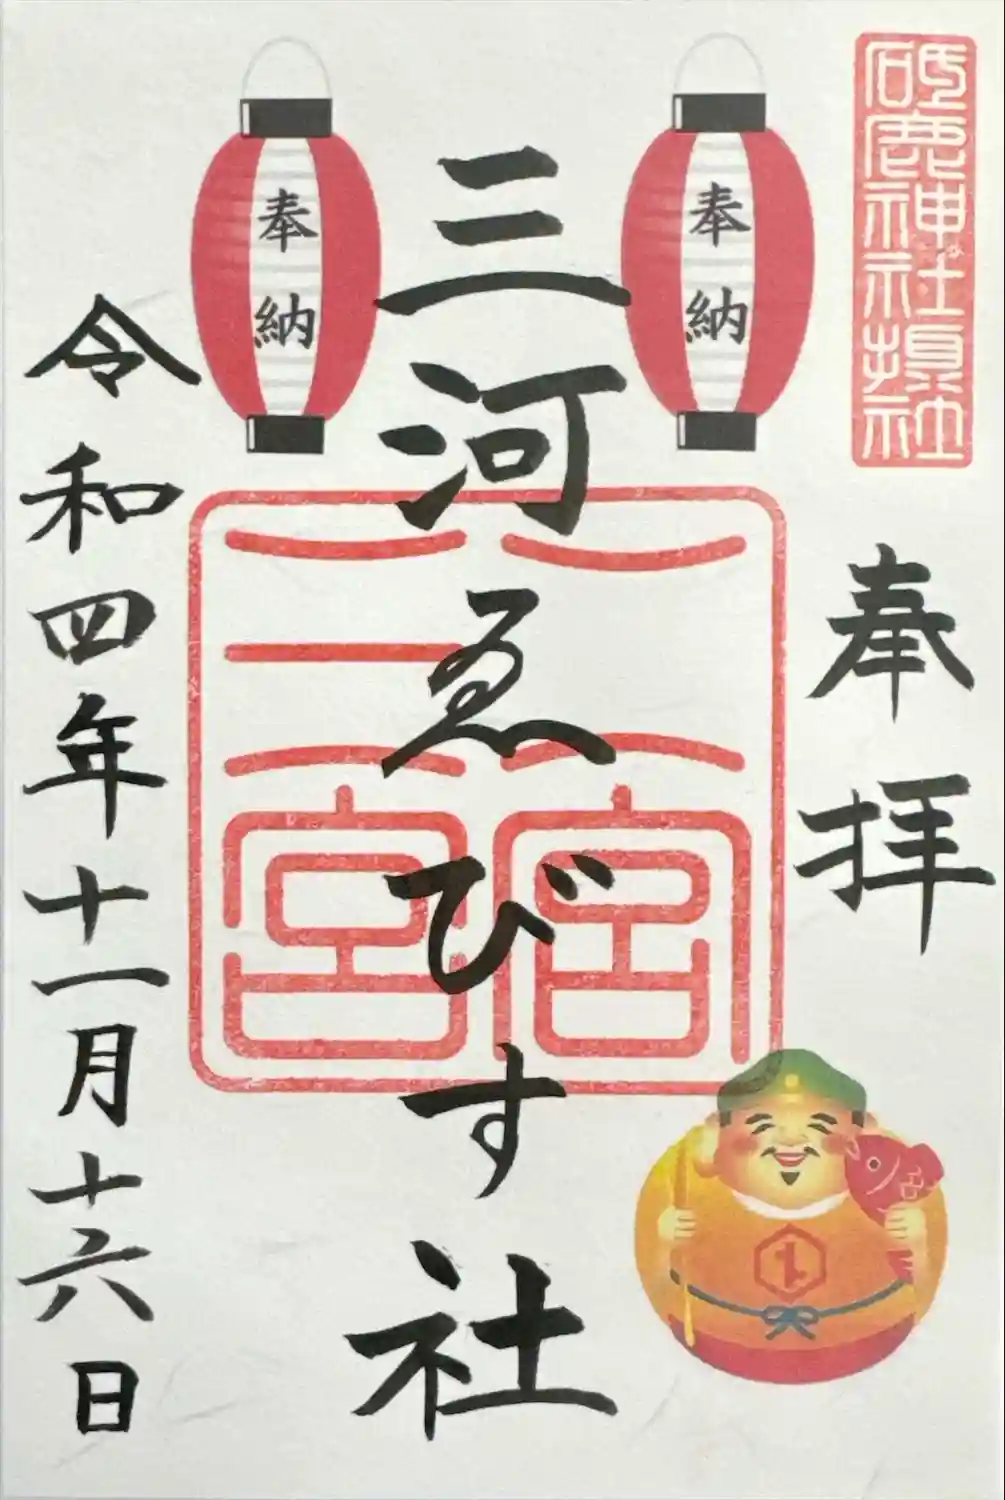 砥鹿神社境
社
奉拝
奉納
三河ゑびす社
奉納
令和四年十一月十六日